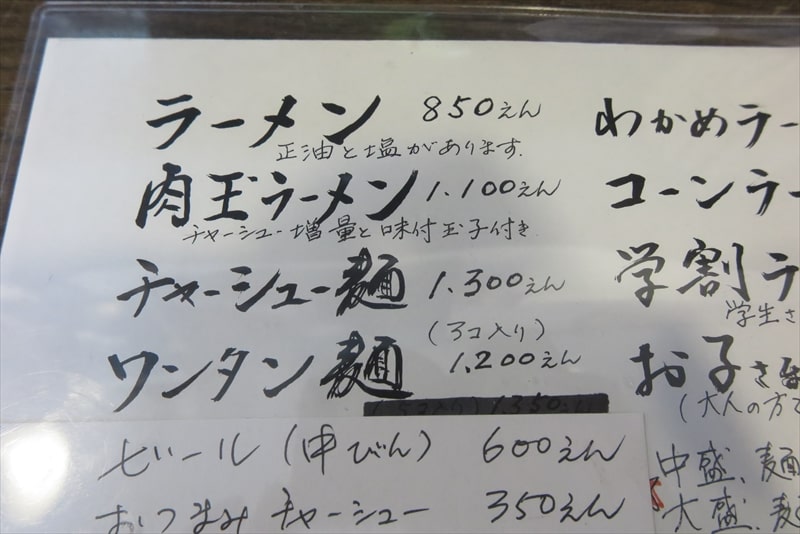 ラーメン 850えん
正油と塩があります.
肉玉ラーメン 1.100えん
チャーシュー増量と味付玉子付き
チャーシュー麺 1.300えん
(3コ入り)
ワンタン麺 1.200えん
(5コ入り) 1.350えん
ビール(中びん) 600えん
おつまみチャーシュー 350えん
わかめラー
コーンラー
学割ラ
学生さ
お子さ
(大人の方
中盛、麺
大盛、麺